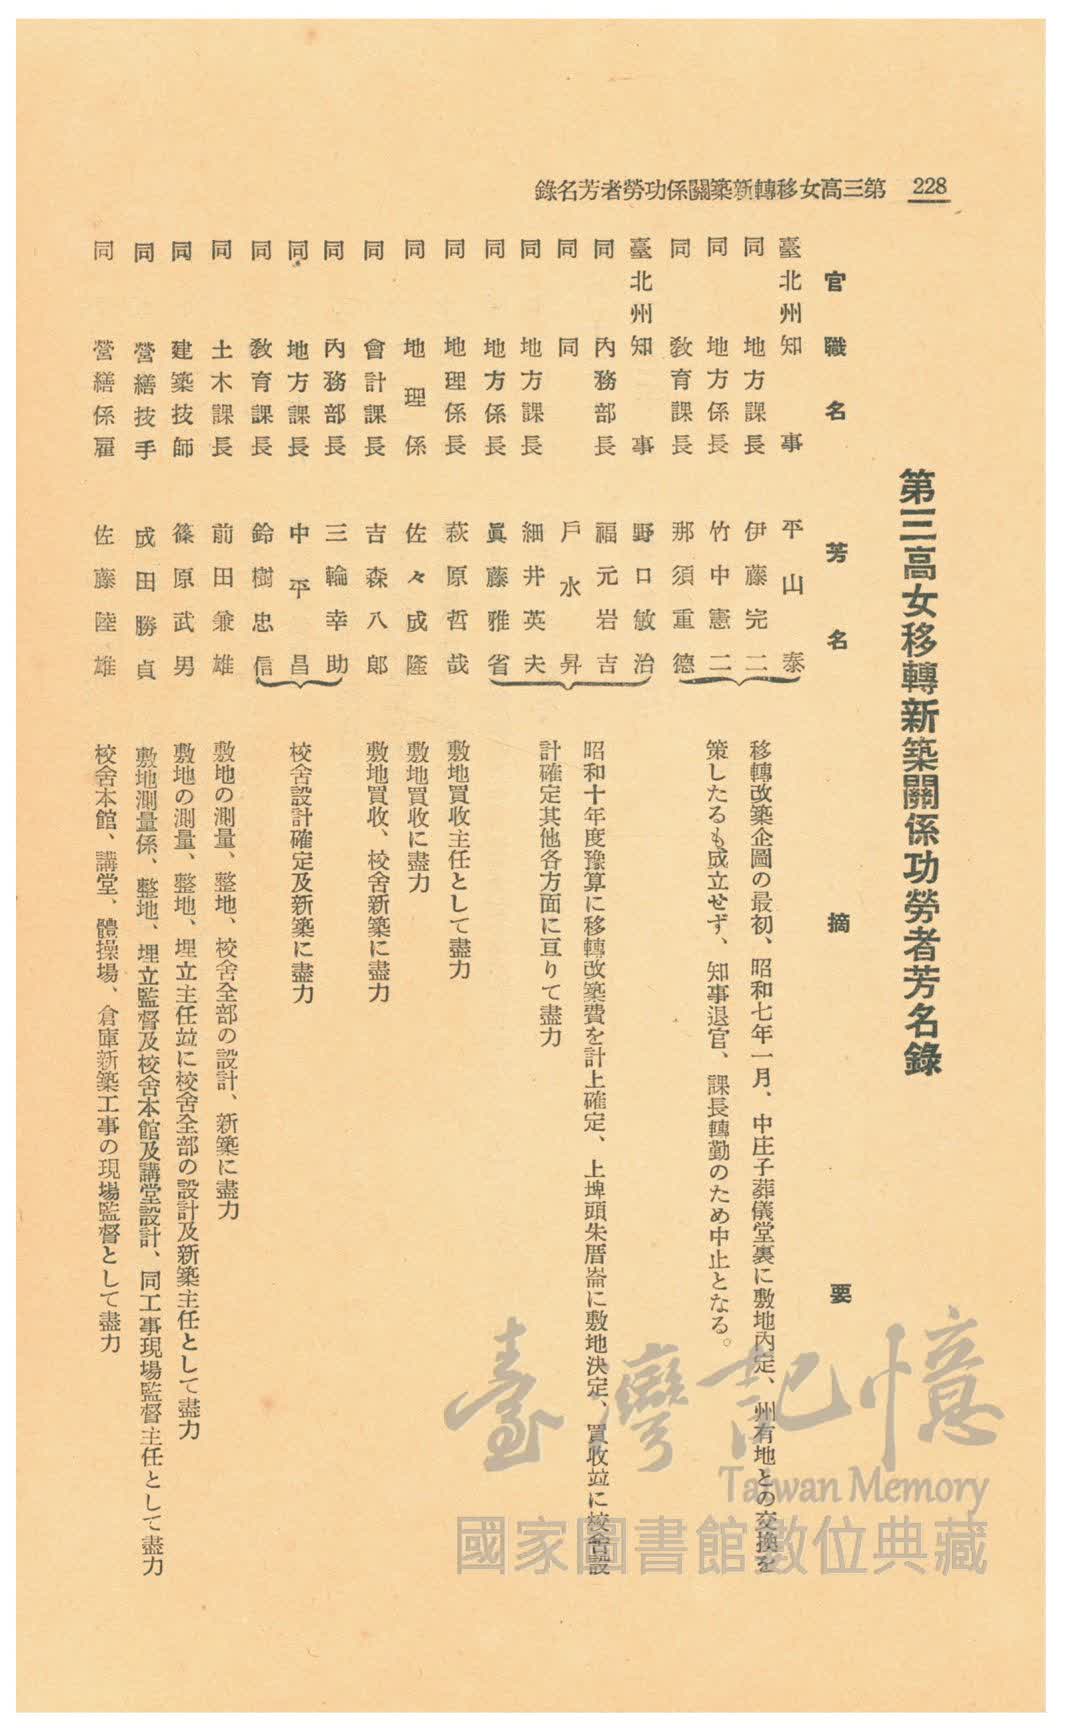 228
第三高女移轉新築關係功勞者芳名錄
第三高女移轉新築關係功勞者芳名錄
官職名 芳名 摘要
臺北州知事 平山泰
同 地方課長 伊藤完二
同 地方係長 竹中憲二
同 教育課長 那須重德
移轉改築企圖の最初、昭和七年一月、中庄子葬儀堂裏に敷地內定、州有地との交換を
策したるも成立せず、知事退官、課長轉勤のため中止となる。
臺北州知事 野口敏治
同 內務部長 福元岩吉
同 同 戶水昇
同 地方課長 細井英夫
同 地方係長 眞藤雅省
昭和十年度豫算に移轉改築費を計上確定、上埤頭朱厝崙に敷地決定、買收竝に校舍設
計確定其他各方面に亘りて盡力
同 地理係長 萩原哲哉 敷地買收主任として盡力
同 地理係 佐々成隆 敷地買收に盡力
同 會計課長 吉森八郎 敷地買收、校舍新築に盡力
同 內務部長 三輪幸助
同 地方課長 中平昌
同 教育課長 鈴樹忠信
校舍設計確定及新築に盡力
同 土木課長 前田兼雄 敷地の測量、整地、校舍全部の設計、新築に盡力
同 建築技師 篠原武男 敷地の測量、整地、埋立主任竝に校舍全部の設計及新築主任として盡力
同 營繕技手 成田勝貞 敷地測量係、整地、埋立監督及校舍本館及講堂設計、同工事現場監督主任として盡力
同 營繕係雇 佐藤陸雄 校舍本館、講堂、體操場、倉庫新築工事の現場監督として盡力
臺灣記憶
Taiwan Memory
國家圖書館數位典藏